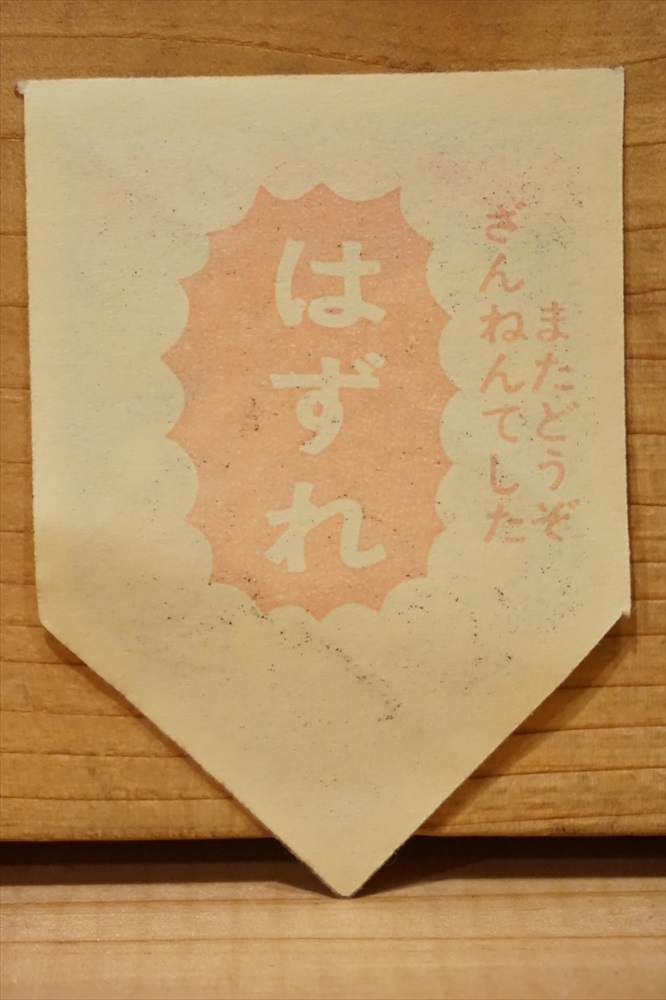 はずれ
ざんねんてした
またどうぞ